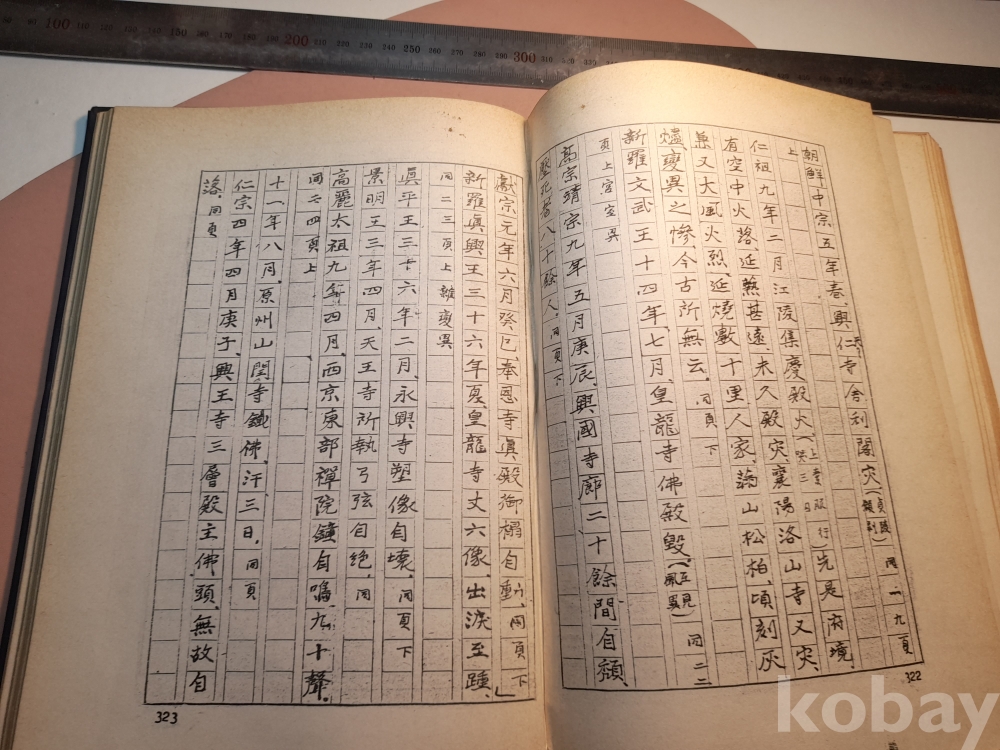 朝鮮中宗五年春、興天寺舍利閣災(貞陵 線刻)同一九頁
上
仁祖九年二月江陵集慶殿火(上素服行哭三日)先是府境
有空中火落、延爇甚遠、未久殿灾、襄陽洛山寺又灾、
兼又大風火烈、延燒數十里人家、滿山松柏、頃刻灰
燼變異之慘、今古所無云、同頁下
新羅文武王十四年、七月、皇龍寺佛殿毀(互見風異)同二二
頁上宮室異
高宗靖宗九年五月庚辰、興國寺廊二十餘間自頹、
壓死者八十餘人、同頁下
322
獻宗元年六月癸巳、奉恩寺眞殿御榻自動、同頁下
新羅眞興王三十六年夏、皇龍寺丈六像、出淚至踵、」
同二三頁上雜變異
眞平王三十六年二月、永興寺塑像自壞、同頁下
景明王三年四月、天王寺所執弓弦自絶、同
高麗太祖九年四月、西京東部禪院鐘自鳴九十聲、
同二四頁上
十一年八月、原州山閏寺鐵佛、汗三日、同頁
仁宗四年四月庚子、興王寺三層殿主佛、頭、無故自
落、同頁
323
kobay